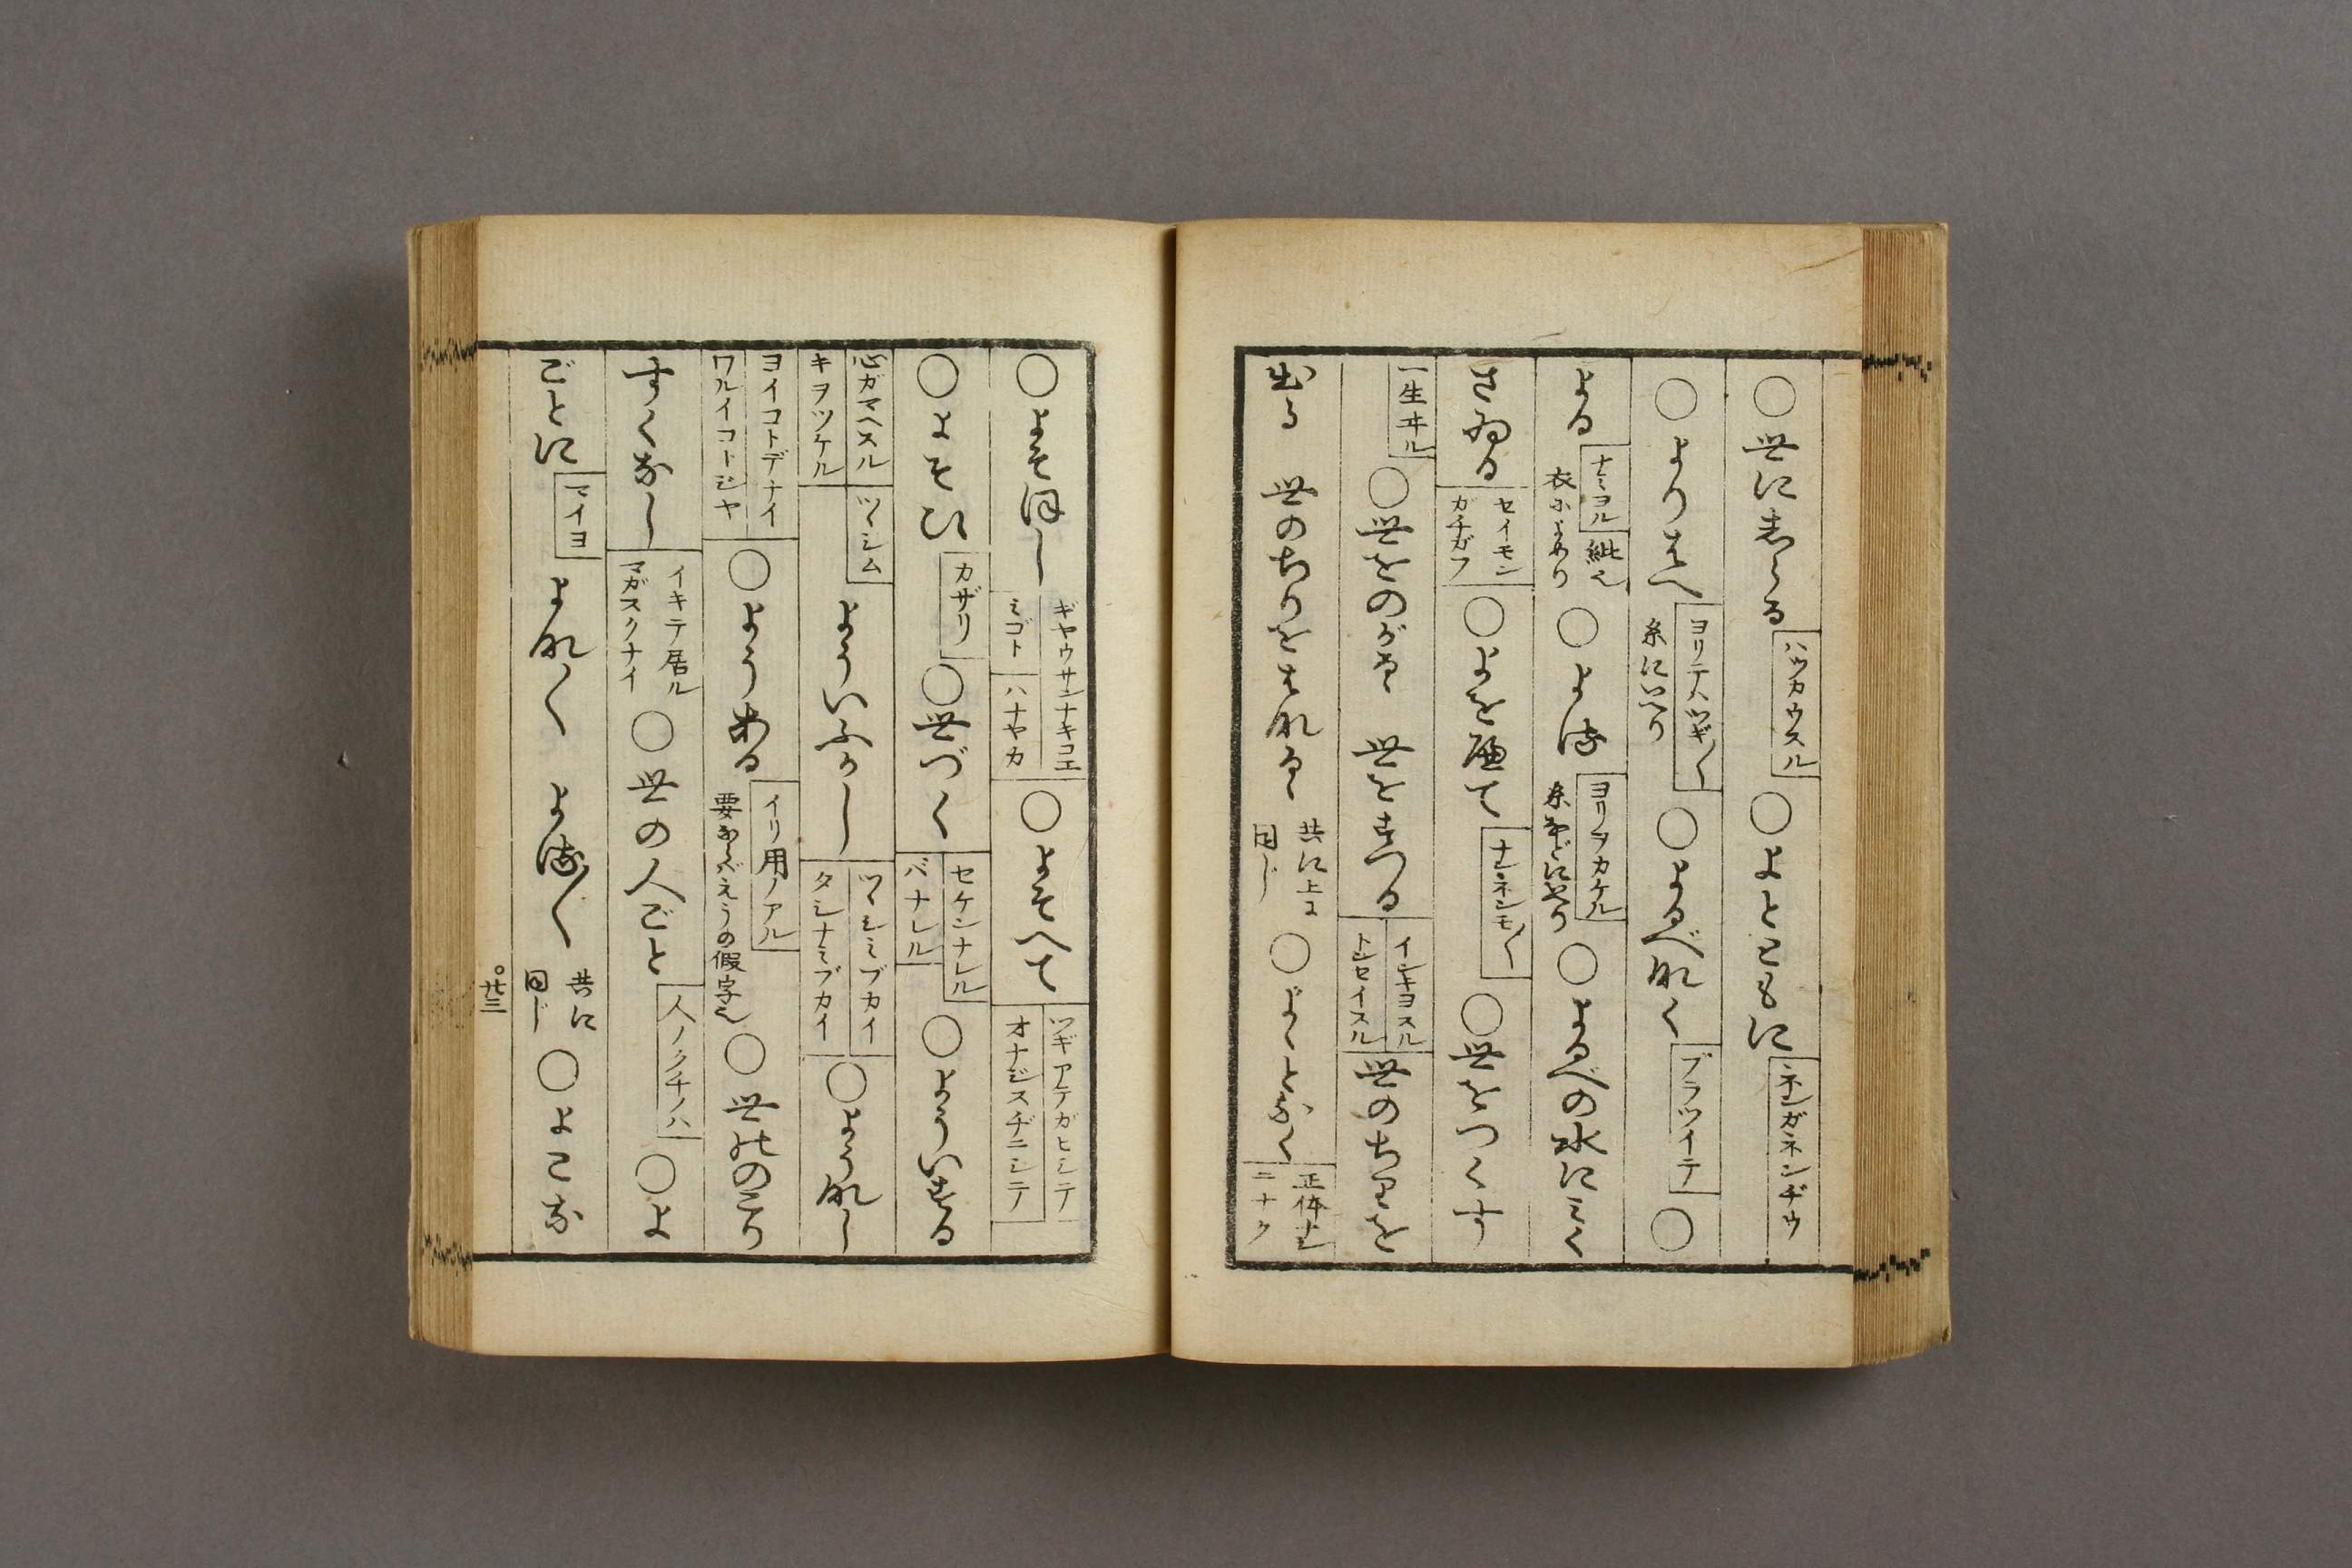 ○世にきゝる ハウカウスル ○よとともに ネンガネンヂウ
○よりはへ ヨリテハツギ〳〵 糸にいへり ○よるべなく ブラツイテ ○
よる ナミヨル 紕也 衣によめり ○よる ヨリヲカケル 糸などにいへり ○よるべの水にみく
さゐる セイモンガチガフ ○よを歴て ナンネンモ〳〵 ○世をつくす
一生ヰル ○世をのがるゝ 世をすつる インキヨスル トンセイスル 世のちりを
出る 世のちりをはなるゝ 共に上に同じ ○よゝとなく 正体ナシニナク
○よそほし ギヤウサンナキコエ ミゴト ハナヤカ ○よそへて ツギアテガヒシテ オナジスヂニシテ
○よそひ カザリ ○世づく セケンナレル バナレル ○よういする
心ガマヘスル キヲツケル ツヽシム よういふかし ツヽシミブカイ タシナミブカイ ○ようなし
ヨイコトデナイ ワルイコトジヤ ○ようある イリ用ノアル 要ならばえうの假字也 ○世ののこり
すくなし イキテ居ルマガスクナイ ○世の人ごと 人ノクチノハ ○よ
ごとに マイヨ よな〳〵 よる〳〵 共に同じ ○よこな
○廿三